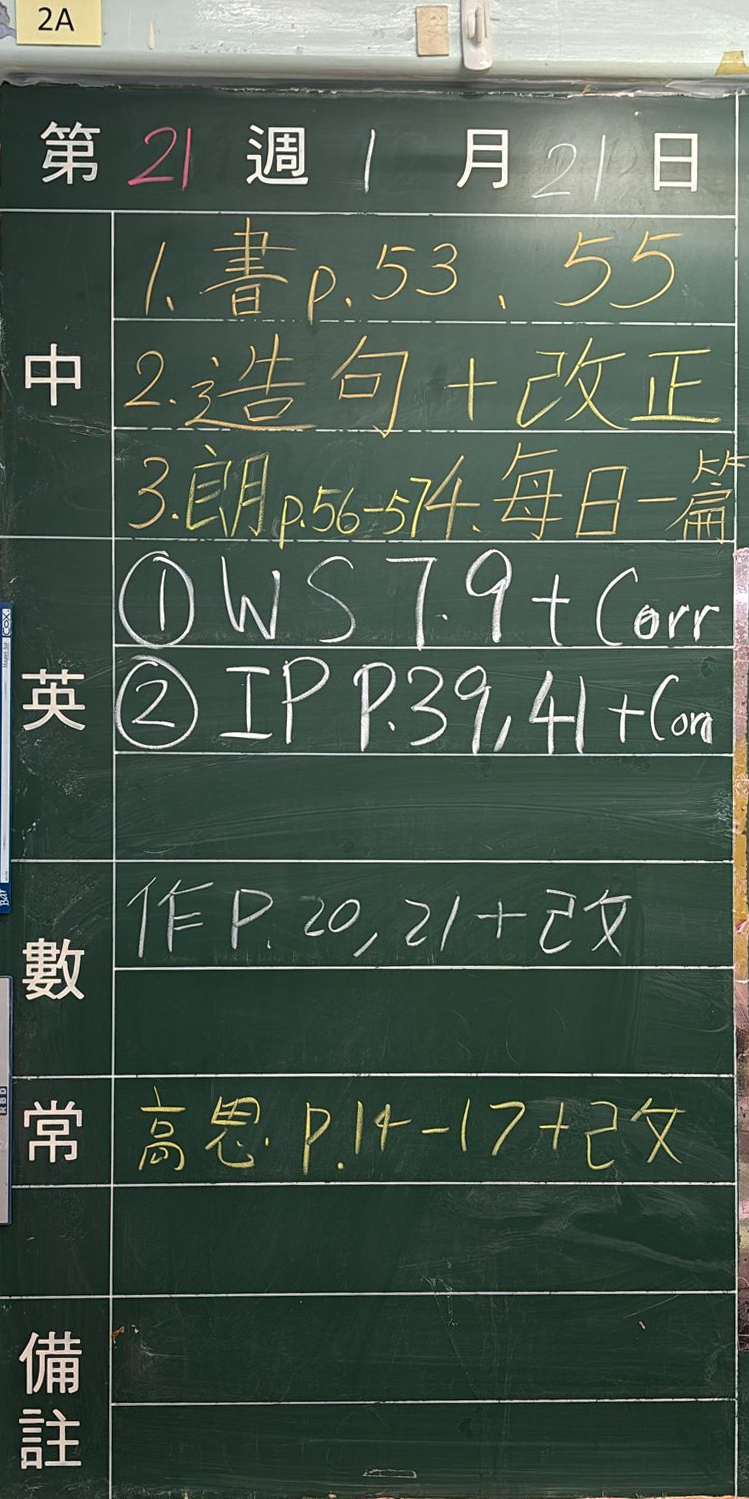 2A
第 21 週 1 月 21 日
中
1. 書 p. 53、55
2. 造句 + 改正
3. 朗 p.56-57 4. 每日一篇
英
① WS 7.9 + Corr
② IP P.39, 41 + Corr
數
作 P. 20, 21 + 改
常
高思. p.14-17 + 改
備註